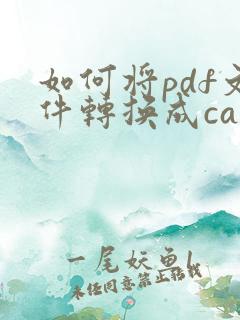 如何将pdf文
件轉换成ca
一尾妖鱼l
未经同意禁止转载